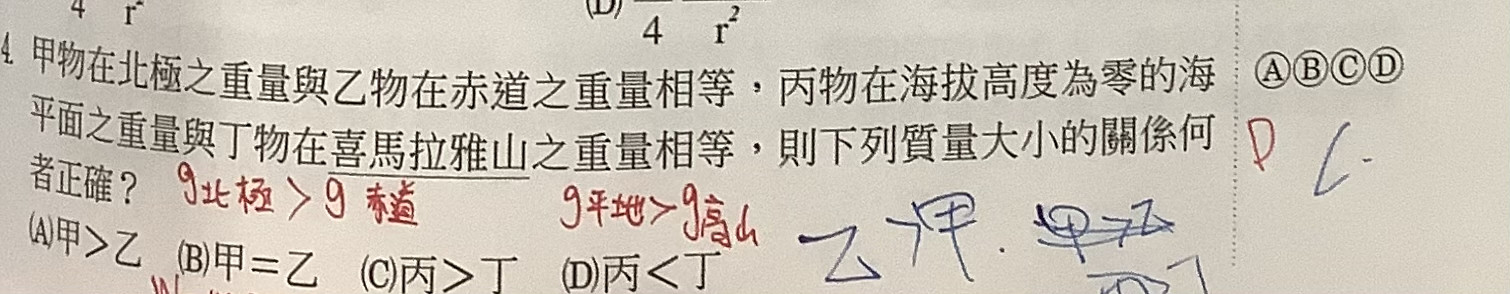 4 r²
(D) 4 r²
4. 甲物在北極之重量與乙物在赤道之重量相等，丙物在海拔高度為零的海
ⒶⒷⒸⒹ
平面之重量與丁物在喜馬拉雅山之重量相等，則下列質量大小的關係何
D
者正確？
g北極＞g赤道 g平地＞g高山
乙＞甲.
(A)甲＞乙 (B)甲＝乙 (C)丙＞丁 (D)丙＜丁